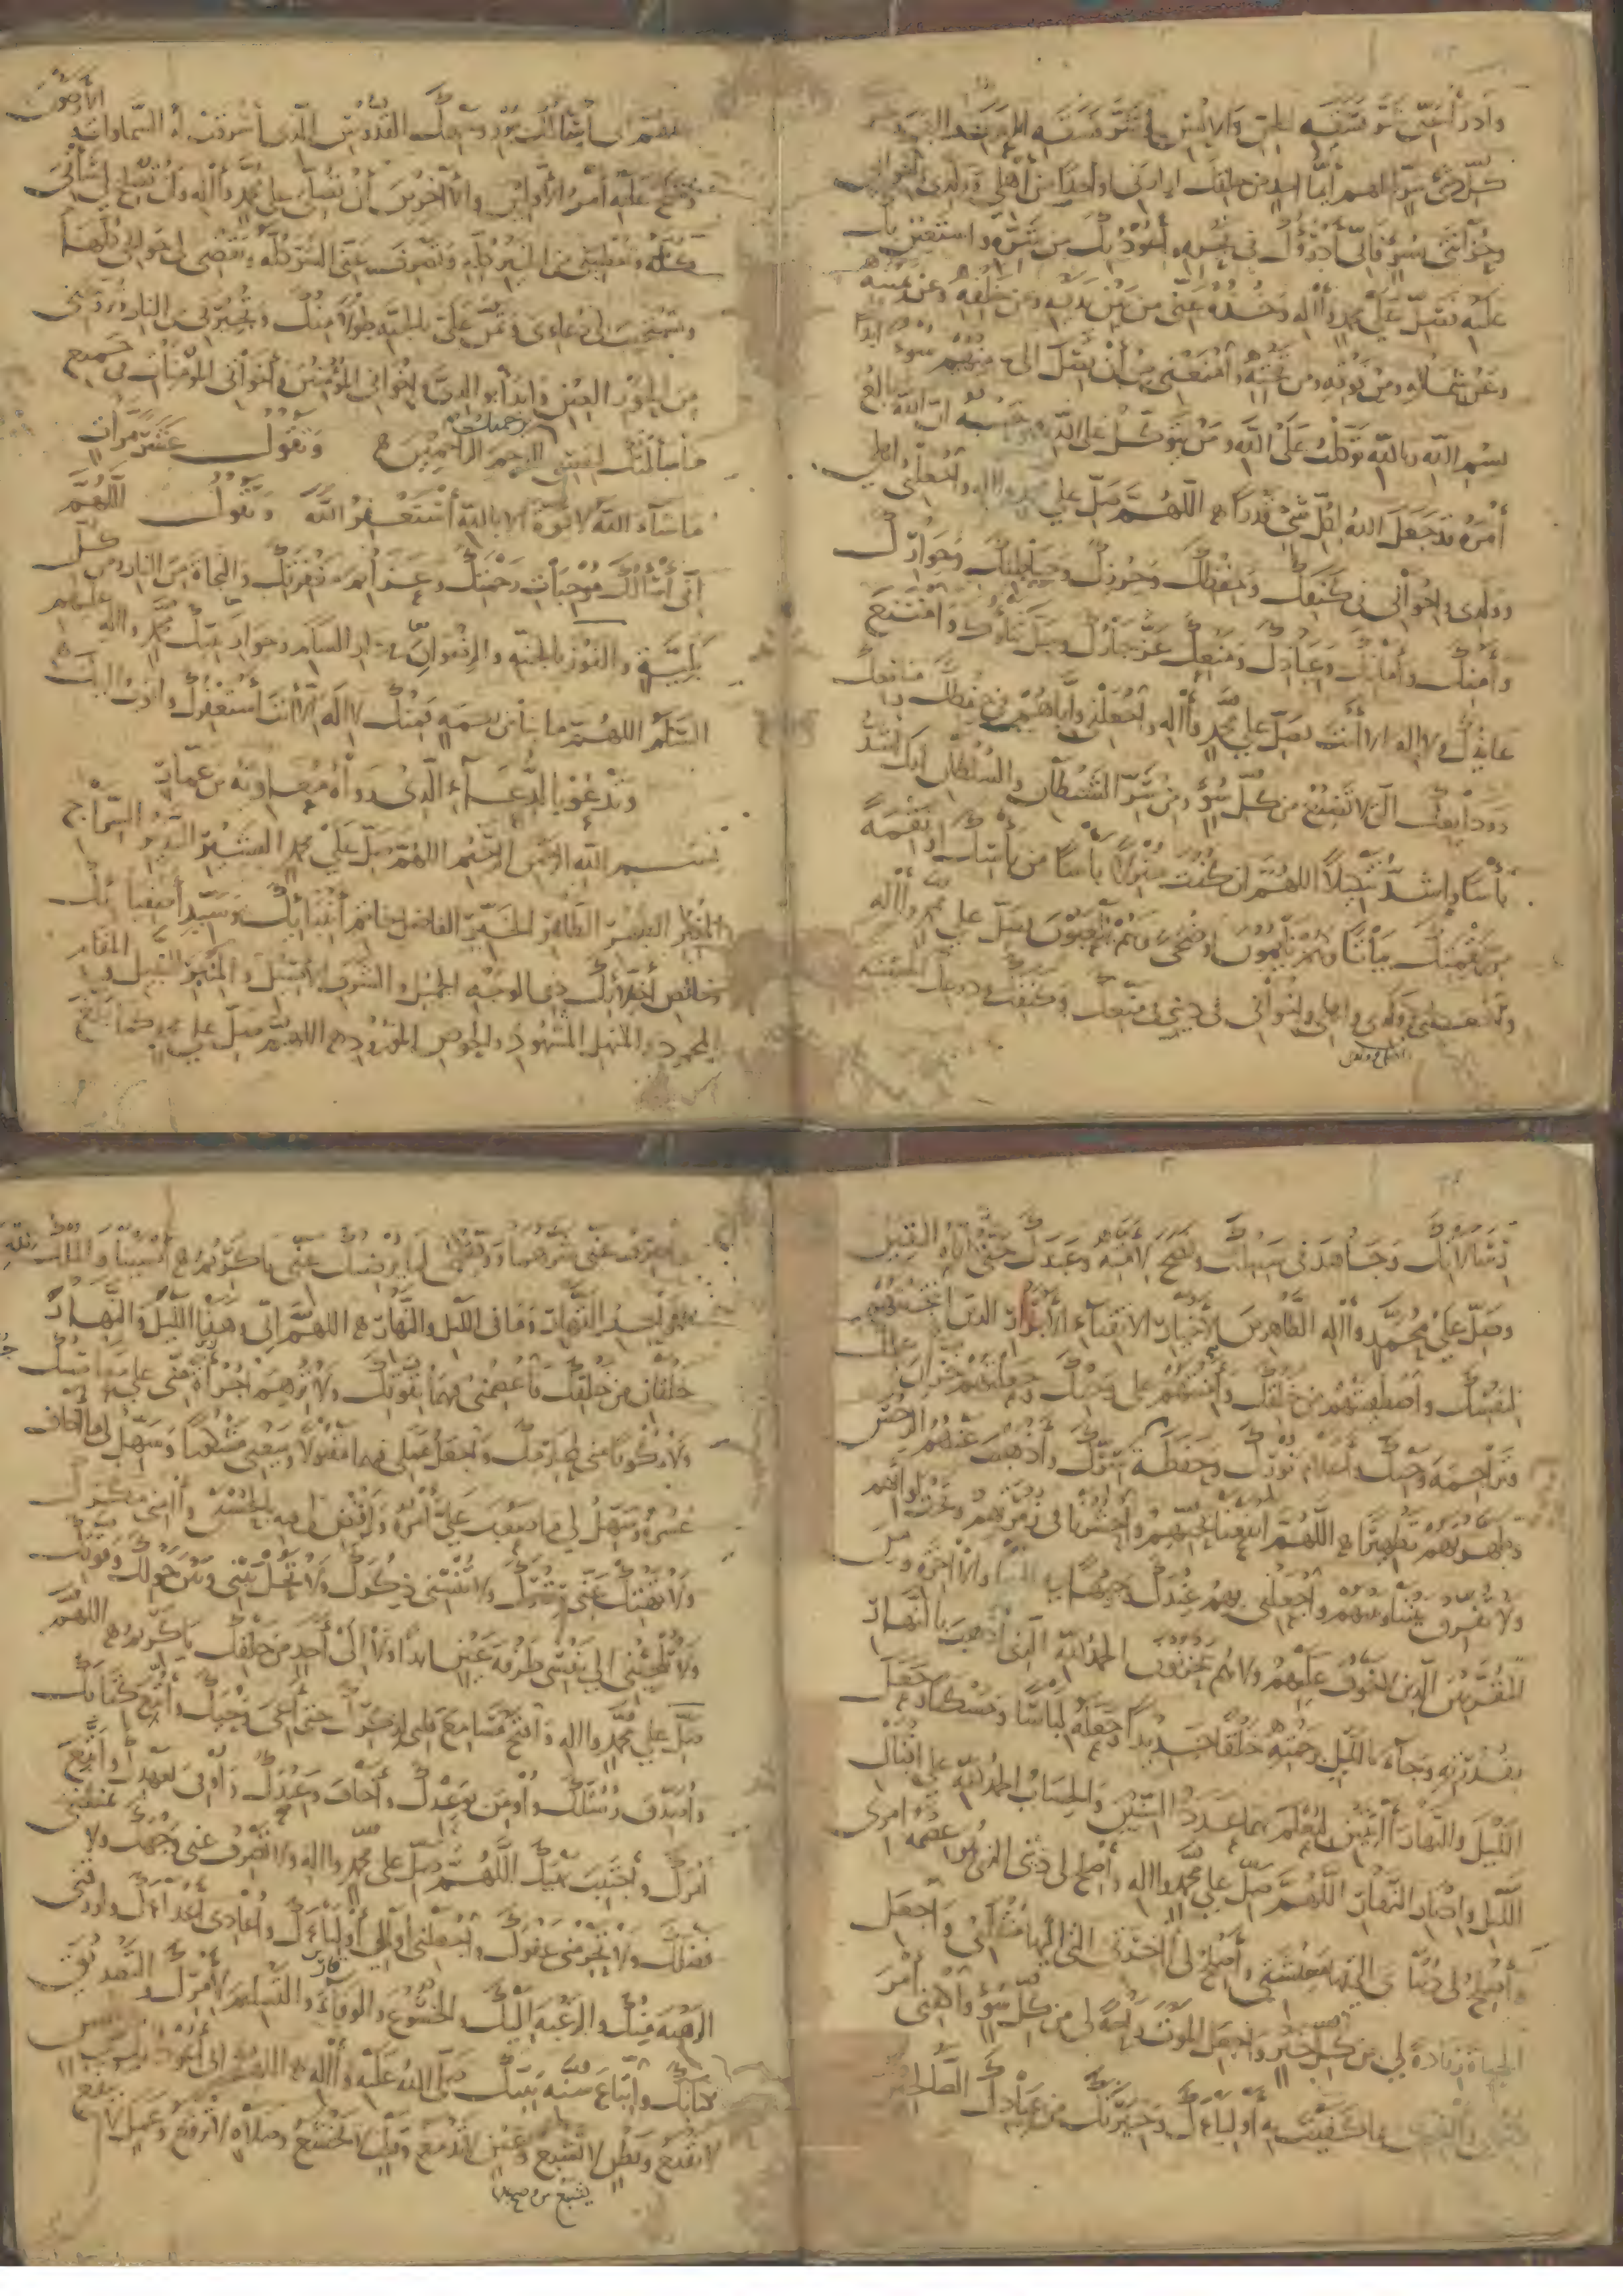 وادرأ عني شر فسقة الجن والانس
كل ذي شر اللهم أيما احد من خلقك ارادني او احدا من أهلي وولدي
وحزانتي بسوء فاني أدرؤك في نحره وأعوذ بك من شره واستعين بك
عليه فصل على محمد وآله وخذه عني من بين يديه ومن خلفه وعن يمينه
وعن شماله ومن فوقه ومن تحته وامنعني من أن يصل الي منهم سوء ابدا
بسم الله وبالله توكلت على الله ومن يتوكل على الله فهو حسبه ان الله بالغ
أمره قد جعل الله لكل شيء قدرا اللهم صل على محمد وآله واجعلني واهلي
وولدي واخواني في كنفك وحفظك وحرزك وحياطتك وجوارك
وأمنك وأمانك وعياذك ومنعك عز جارك وجل ثناؤك وامتنع
عائذك ولا اله الا أنت فصل على محمد وآله واجعلني واياهم في حفظك
وودائعك التي لا تضيع من كل سوء ومن شر الشيطان والسلطان انك أشد
بأسا واشد تنكيلا اللهم ان كنت منزلا بأسا من بأسك او نقمة
من نقمتك بياتا وهم نايمون او ضحى وهم يلعبون فصل على محمد وآله
واجعلني وولدي واهلي واخواني في ديني في منعك وكنفك ودرعك الحصينة
اللهم اني أسألك بنور وجهك القدوس الذي أشرقت له السماوات والأرضون
وصلح عليه أمر الأولين والآخرين أن تصلي على محمد وآله وأن تصلح لي شأني
كله وتعطيني من الخير كله وتصرف عني الشر كله وتقضي لي حوائجي كلها
وتستجيب لي دعاءي وتمن علي بالجنة طولا منك وتجيرني من النار وتزوجني
من الحور العين وابدأ بوالدي واخواني المؤمنين وأخواتي المؤمنات في جميع
ما سألتك لنفسي برحمتك يا ارحم الراحمين وتقول عشر مرات
ما شاء الله لا قوة الا بالله أستغفر الله وتقول اللهم
اني أسألك موجبات رحمتك وعزائم مغفرتك والنجاة من النار ومن كل
بلية والفوز بالجنة والرضوان في دار السلام وجوار نبيك محمد وآله عليهم
السلم اللهم ما بنا من نعمة فمنك لا اله الا أنت أستغفرك واتوب اليك
وتدعو بالدعاء الذي رواه معاوية بن عمار
بسم الله الرحمن الرحيم اللهم صل على محمد البشير النذير السراج
المنير الطهر الطاهر الخير الفاضل خاتم أنبيائك وسيد أصفيائك
وخالص أخلائك ذي الوجه الجميل والشرف الأصيل والمنبر النبيل والمقام
المحمود والمنهل المشهود والحوض المورود اللهم صل على محمد كما بلغ
رسالاتك وجاهد في سبيلك ونصح لأمته وعبدك حتى أتاه اليقين
وصل على محمد وآله الطاهرين الأخيار الأتقياء الأبرار الذين انتجبتهم
لنفسك واصطفيتهم من خلقك وأمنتهم على وحيك وجعلتهم خزان علمك
وتراجمة وحيك وأعلام نورك وحفظة سرك وأذهبت عنهم الرجس
وطهرتهم تطهيرا اللهم انفعنا بحبهم واحشرنا في زمرتهم وتحت لوائهم
ولا تفرق بيننا وبينهم واجعلني بهم عندك وجيها في الدنيا والآخرة ومن
المقربين الذين لا خوف عليهم ولا هم يحزنون الحمد لله الذي أذهب بالنهار
بقدرته وجاء بالليل برحمته خلقا جديدا وجعله لباسا ومسكنا وجعل
الليل والنهار آيتين ليعلم بهما عدد السنين والحساب الحمد لله على اقبال
الليل وادبار النهار اللهم صل على محمد وآله وأصلح لي ديني الذي هو عصمة أمري
وأصلح لي دنياي التي فيها معيشتي وأصلح لي آخرتي التي اليها منقلبي واجعل
الحياة زيادة لي من كل خير واجعل الموت راحة لي من كل سوء واكفني أمر
دنياي وآخرتي بما كفيت به أولياءك وخيرتك من عبادك الصالحين
واصرف عني شرهما ووفقني لما يرضيك عني يا كريم أمسينا والملك
لله الواحد القهار وما في الليل والنهار اللهم اني وهذا الليل والنهار
خلقان من خلقك فاعصمني فيهما بقوتك ولا ترهما جرأة مني على معاصيك
ولا ركوبا مني لمحارمك واجعل عملي فيهما مقبولا وسعيي مشكورا وسهل لي ما أخاف
عسره وسهل لي ما صعب علي أمره واقض لي فيه بالحسنى وآمني مكرك
ولا تهتك عني سترك ولا تنسني ذكرك ولا تحل بيني وبين حولك وقوتك
ولا تلجئني الى نفسي طرفة عين ابدا ولا الى أحد من خلقك يا كريم اللهم
صل على محمد وآله وافتح مسامع قلبي لذكرك حتى أعي وحيك وأتبع كتابك
وأصدق رسلك وأومن بوعدك وأخاف وعيدك وأوفي بعهدك وأتبع
أمرك وأجتنب نهيك اللهم صل على محمد وآله ولا تصرف عني وجهك ولا تمنعني
فضلك ولا تحرمني عفوك واجعلني أوالي أولياءك وأعادي أعداءك وارزقني
الرهبة منك والرغبة اليك والخشوع والوقار والتسليم لأمرك والتصديق
بكتابك واتباع سنة نبيك صلى الله عليه وآله اللهم اني أعوذ بك من نفس
لا تقنع وبطن لا تشبع وعين لا تدمع وقلب لا يخشع وصلاة لا ترفع وعمل لا ينفع